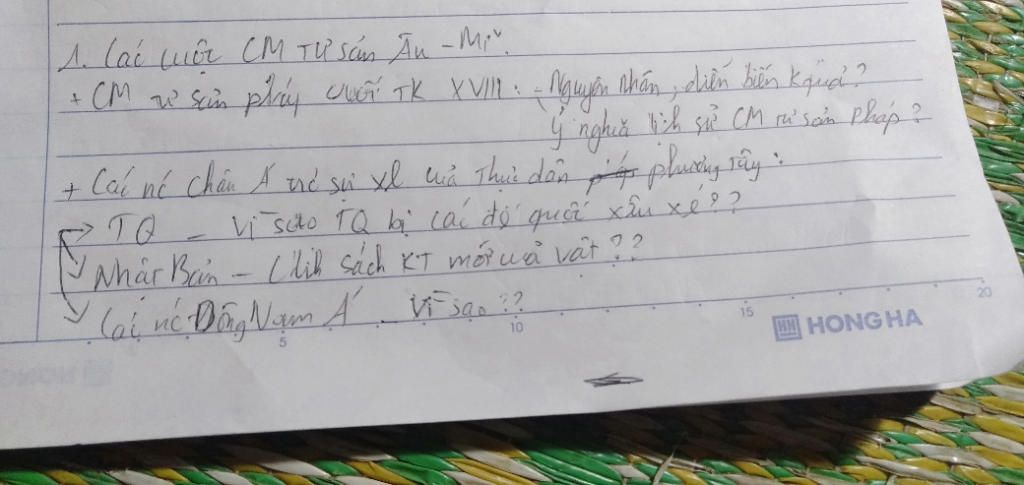 1. Các cuộc CM Tư sản Âu - Mĩ.
+ CM tư sản pháp cuối TK XVIII: - Nguyên nhân, diễn biến kquả?
Ý nghĩa lịch sử CM tư sản Pháp?
+ Các nc Châu Á và sự xl của Thực dân phương Tây:
→ TQ - Vì sao TQ bị các đế quốc xâu xé??
Nhật Bản - C sách KT mới
Các nc Đông Nam Á - Vì sao??
5 10 15 20
HH HONG HA